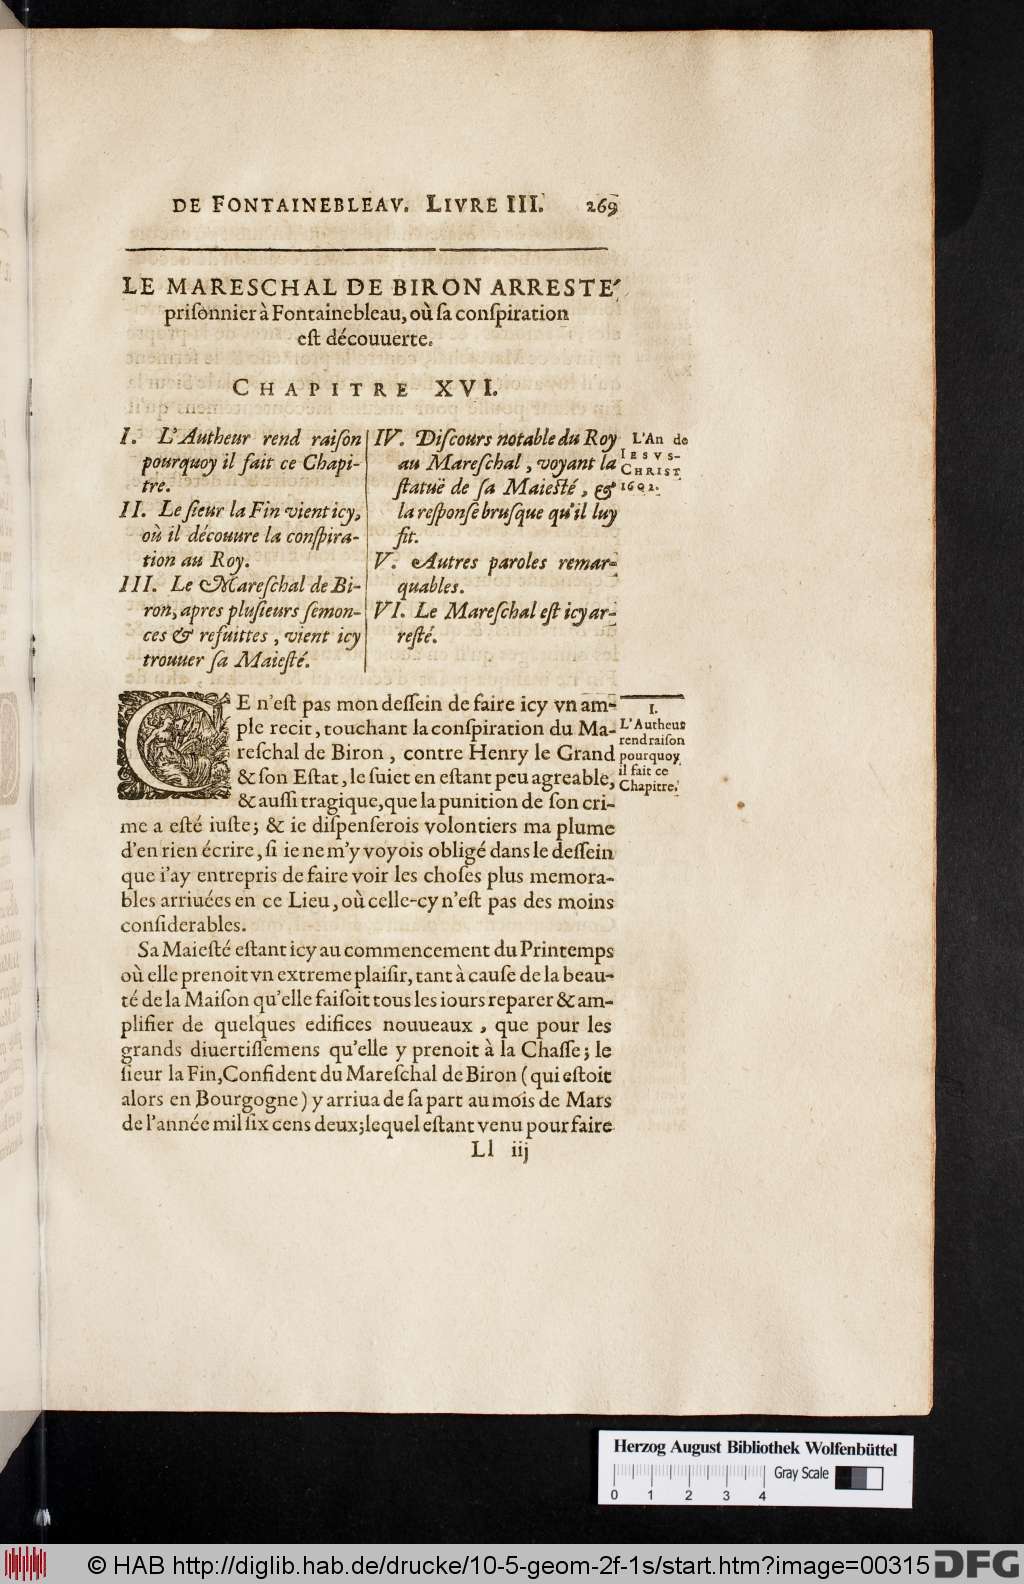 DE FONTAINEBLEAV. LIVRE III. 269
LE MARESCHAL DE BIRON ARRESTÉ
priſonnier à Fontainebleau, où ſa conſpiration
eſt découuerte.
CHAPITRE XVI.
I. L'Autheur rend raiſon
pourquoy il fait ce Chapi-
tre.
II. Le ſieur la Fin vient icy,
où il découure la conſpira-
tion au Roy.
III. Le Mareſchal de Bi-
ron, apres pluſieurs ſemon-
ces & refuittes, vient icy
trouuer ſa Maieſté.
IV. Diſcours notable du Roy
au Mareſchal, voyant la
ſtatuë de ſa Maieſté, &
la reſponſe bruſque qu'il luy
fit.
V. Autres paroles remar-
quables.
VI. Le Mareſchal eſt icy ar-
reſté.
L'An de
IESVS-
CHRIST
1602.
CE n'eſt pas mon deſſein de faire icy vn am-
ple recit, touchant la conſpiration du Ma-
reſchal de Biron, contre Henry le Grand
& ſon Eſtat, le ſuiet en eſtant peu agreable,
& auſſi tragique, que la punition de ſon cri-
me a eſté iuſte; & ie diſpenſerois volontiers ma plume
d'en rien écrire, ſi ie ne m'y voyois obligé dans le deſſein
que i'ay entrepris de faire voir les choſes plus memora-
bles arriuées en ce Lieu, où celle-cy n'eſt pas des moins
conſiderables.
I.
L'Autheur
rend raiſon
pourquoy
il fait ce
Chapitre.
Sa Maieſté eſtant icy au commencement du Printemps
où elle prenoit vn extreme plaiſir, tant à cauſe de la beau-
té de la Maiſon qu'elle faiſoit tous les iours reparer & am-
plifier de quelques edifices nouueaux, que pour les
grands diuertiſſemens qu'elle y prenoit à la Chaſſe; le
ſieur la Fin, Confident du Mareſchal de Biron (qui eſtoit
alors en Bourgogne) y arriua de ſa part au mois de Mars
de l'année mil ſix cens deux; lequel eſtant venu pour faire
Ll iij
Herzog August Bibliothek Wolfenbüttel
Gray Scale
0 1 2 3 4
© HAB http://diglib.hab.de/drucke/10-5-geom-2f-1s/start.htm?image=00315 DFG